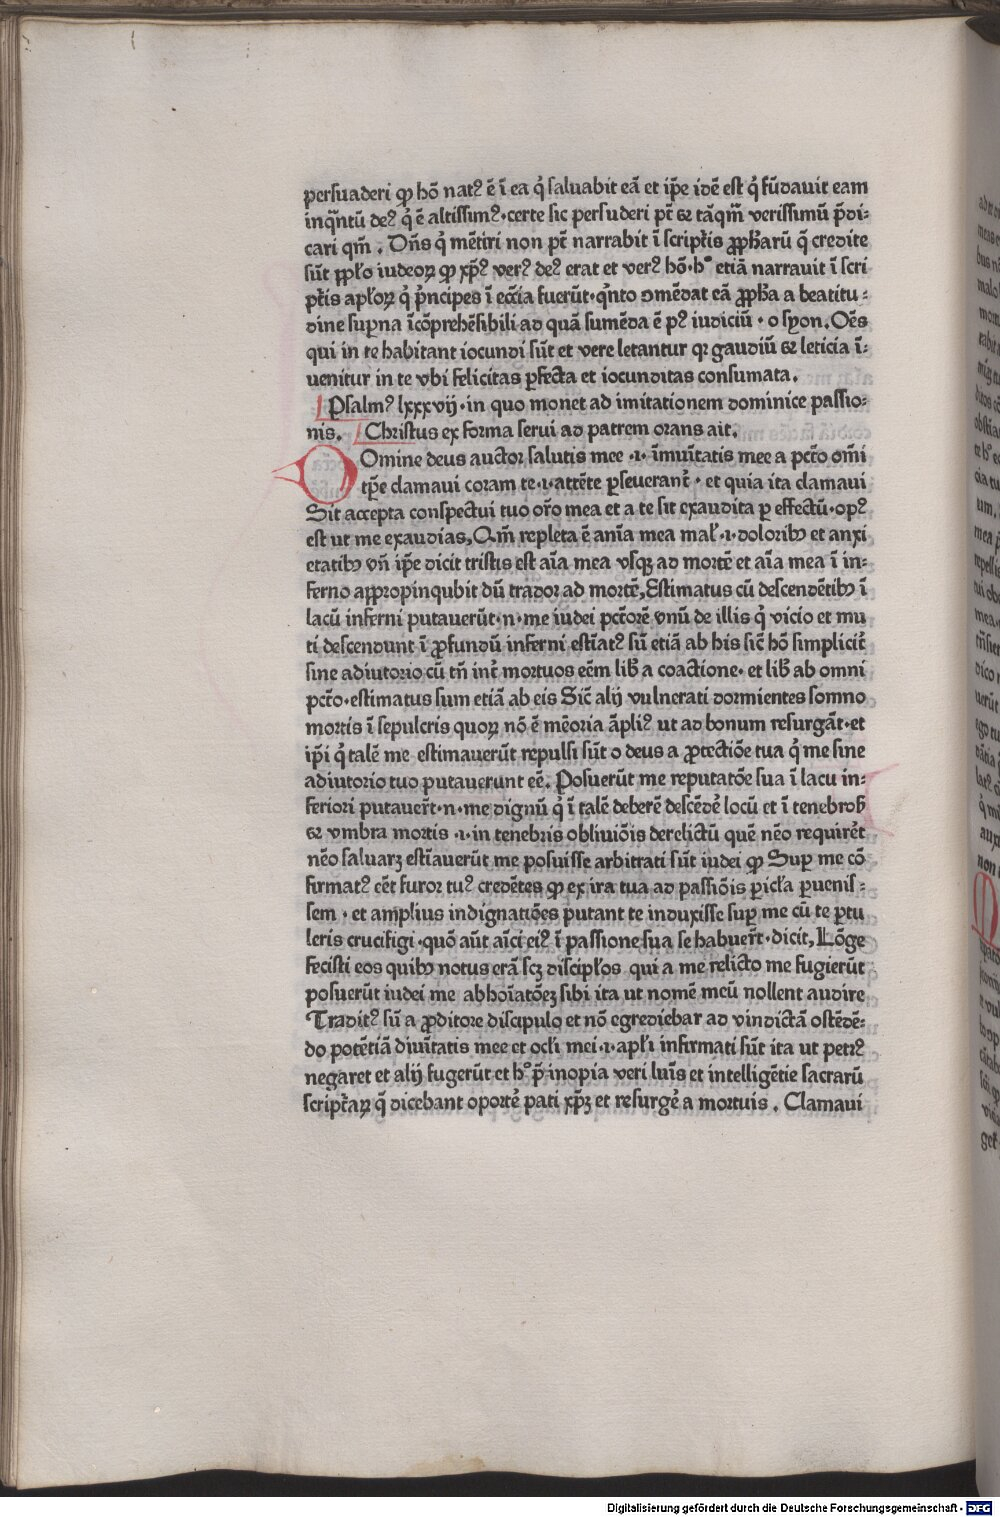 persuaderi ꝙ hõ nat⁹ ẽ ĩ ea q̇ saluabit eã et ip̃e idẽ est q̇ fũdauit eam
inq̃ntũ de⁹ q̇ ẽ altissim⁹·certe sic persuderi pt̃ ⁊ tãq̃m̃ verissimũ p̃di:
cari qm̃ . Dñs q̇ mẽtiri non pt̃ narrabit ĩ scriptis ꝓph̃arũ q̃ credite
sũt ꝓpło iudeoꝝ ꝙ xp̃⁹ ver⁹ de⁹ erat et ver⁹ hõ·h° etiã narrauit ĩ scri
pt̃is apłoꝝ q̇ p̃ncipes ĩ ecc̃ia fuerũt·q̇nto ↄmẽdat eã ꝓph̃a a beatitu:
dine sup̱na ĩcõprehẽsibili ad quã sumẽda ẽ p⁹ iudiciũ · o syon. Oẽs
qui in te habitant iocundi sũt et vere letantur qꝛ gaudiũ ⁊ leticia ĩ:
uenitur in te vbi felicitas ꝑfecta et iocunditas consumata.
Psalm⁹ lxxxvij·in quo monet ad imitationem dominice passio-
nis. Christus ex forma serui ad patrem orans ait.
Domine deus auctor salutis mee ·i· ĩmuñtatis mee a pctõ om̃i
tp̃e clamaui coram te·i·attẽte ꝑseuerant̃ · et quia ita clamaui
Sit accepta conspectui tuo or̃o mea et a te sit exaudita ꝑ effectũ·op⁹
est ut me exaudias, Qm̃ repleta ẽ anĩa mea mał·i·dolorib⁹ et anxi
etatib⁹ vñ ip̃e dicit tristis est aĩa mea vsqꝫ ad mortẽ et aĩa mea ĩ in-
ferno appropinqubit dũ trador ad mortẽ, Estimatus cũ descendẽtib⁹ ĩ
lacũ inferni putauerũt·n·me iudei pctõrẽ vnũ de illis q̇ vicio et mu
ti descendunt ĩ ꝓfundũ inferni estĩat⁹ sũ etiã ab his sic̃ hõ simplicit̃
sine adiutorio cũ tñ int̃ mortuos eẽm lib̃ a coactione· et lib̃ ab omni
pctõ·estimatus sum etiã ab eis Sic̃ alij vulnerati dormientes somno
mortis ĩ sepulcris quoꝝ nõ ẽ mẽoria ãpli⁹ ut ad bonum resurgãt·et
ip̃i q̇ talẽ me estimauerũt repulsi sũt o deus a ꝓtectiõe tua q̇ me sine
adiutorio tuo putauerunt eẽ. Posuerũt me reputatõe sua ĩ lacu in:
feriori putauer̃t·n·me dignũ q̇ ĩ talẽ deberẽ descẽdẽ locũ et ĩ tenebrob̃
⁊ vmbra mortis ·i·in tenebris obliuiõis derelictũ quẽ nẽo requirẽt
nẽo saluarꝫ estĩauerũt me posuisse arbitrati sũt iudei ꝙ Suꝑ me cõ
firmat⁹ cẽt furor tu⁹ credẽtes ꝙ ex ira tua ad passiõis ꝑicła ꝑuenis:
sem · et amplius indignatiões putant te induxisse suꝑ me cũ te ꝑtu
leris crucifigi·quõ aũt aĩci ei⁹ ĩ passione sua se habuer̃t·dicit, Lõge
fecisti eos quib⁹ notus erã scꝫ discipłos qui a me relicto me fugierũt
posuerũt iudei me abhoĩatõeꝫ sibi ita ut nomẽ meũ nollent audire
Tradit⁹ sũ a ꝓditore discipulo et nõ egrediebar ad vindictã ostẽdẽ:
do potẽtiã diuĩtatis mee et ocłi mei·i·apłi infirmati sũt ita ut petr⁹
negaret et alij fugerũt et h° p̃ inopia veri luĩs et intelligẽtie sacrarũ
script̃aꝝ q̃ dicebant oportẽ pati xp̃ꝫ et resurgẽ a mortuis . Clamaui
Digitalisierung gefördert durch die Deutsche Forschungsgemeinschaft - DFG